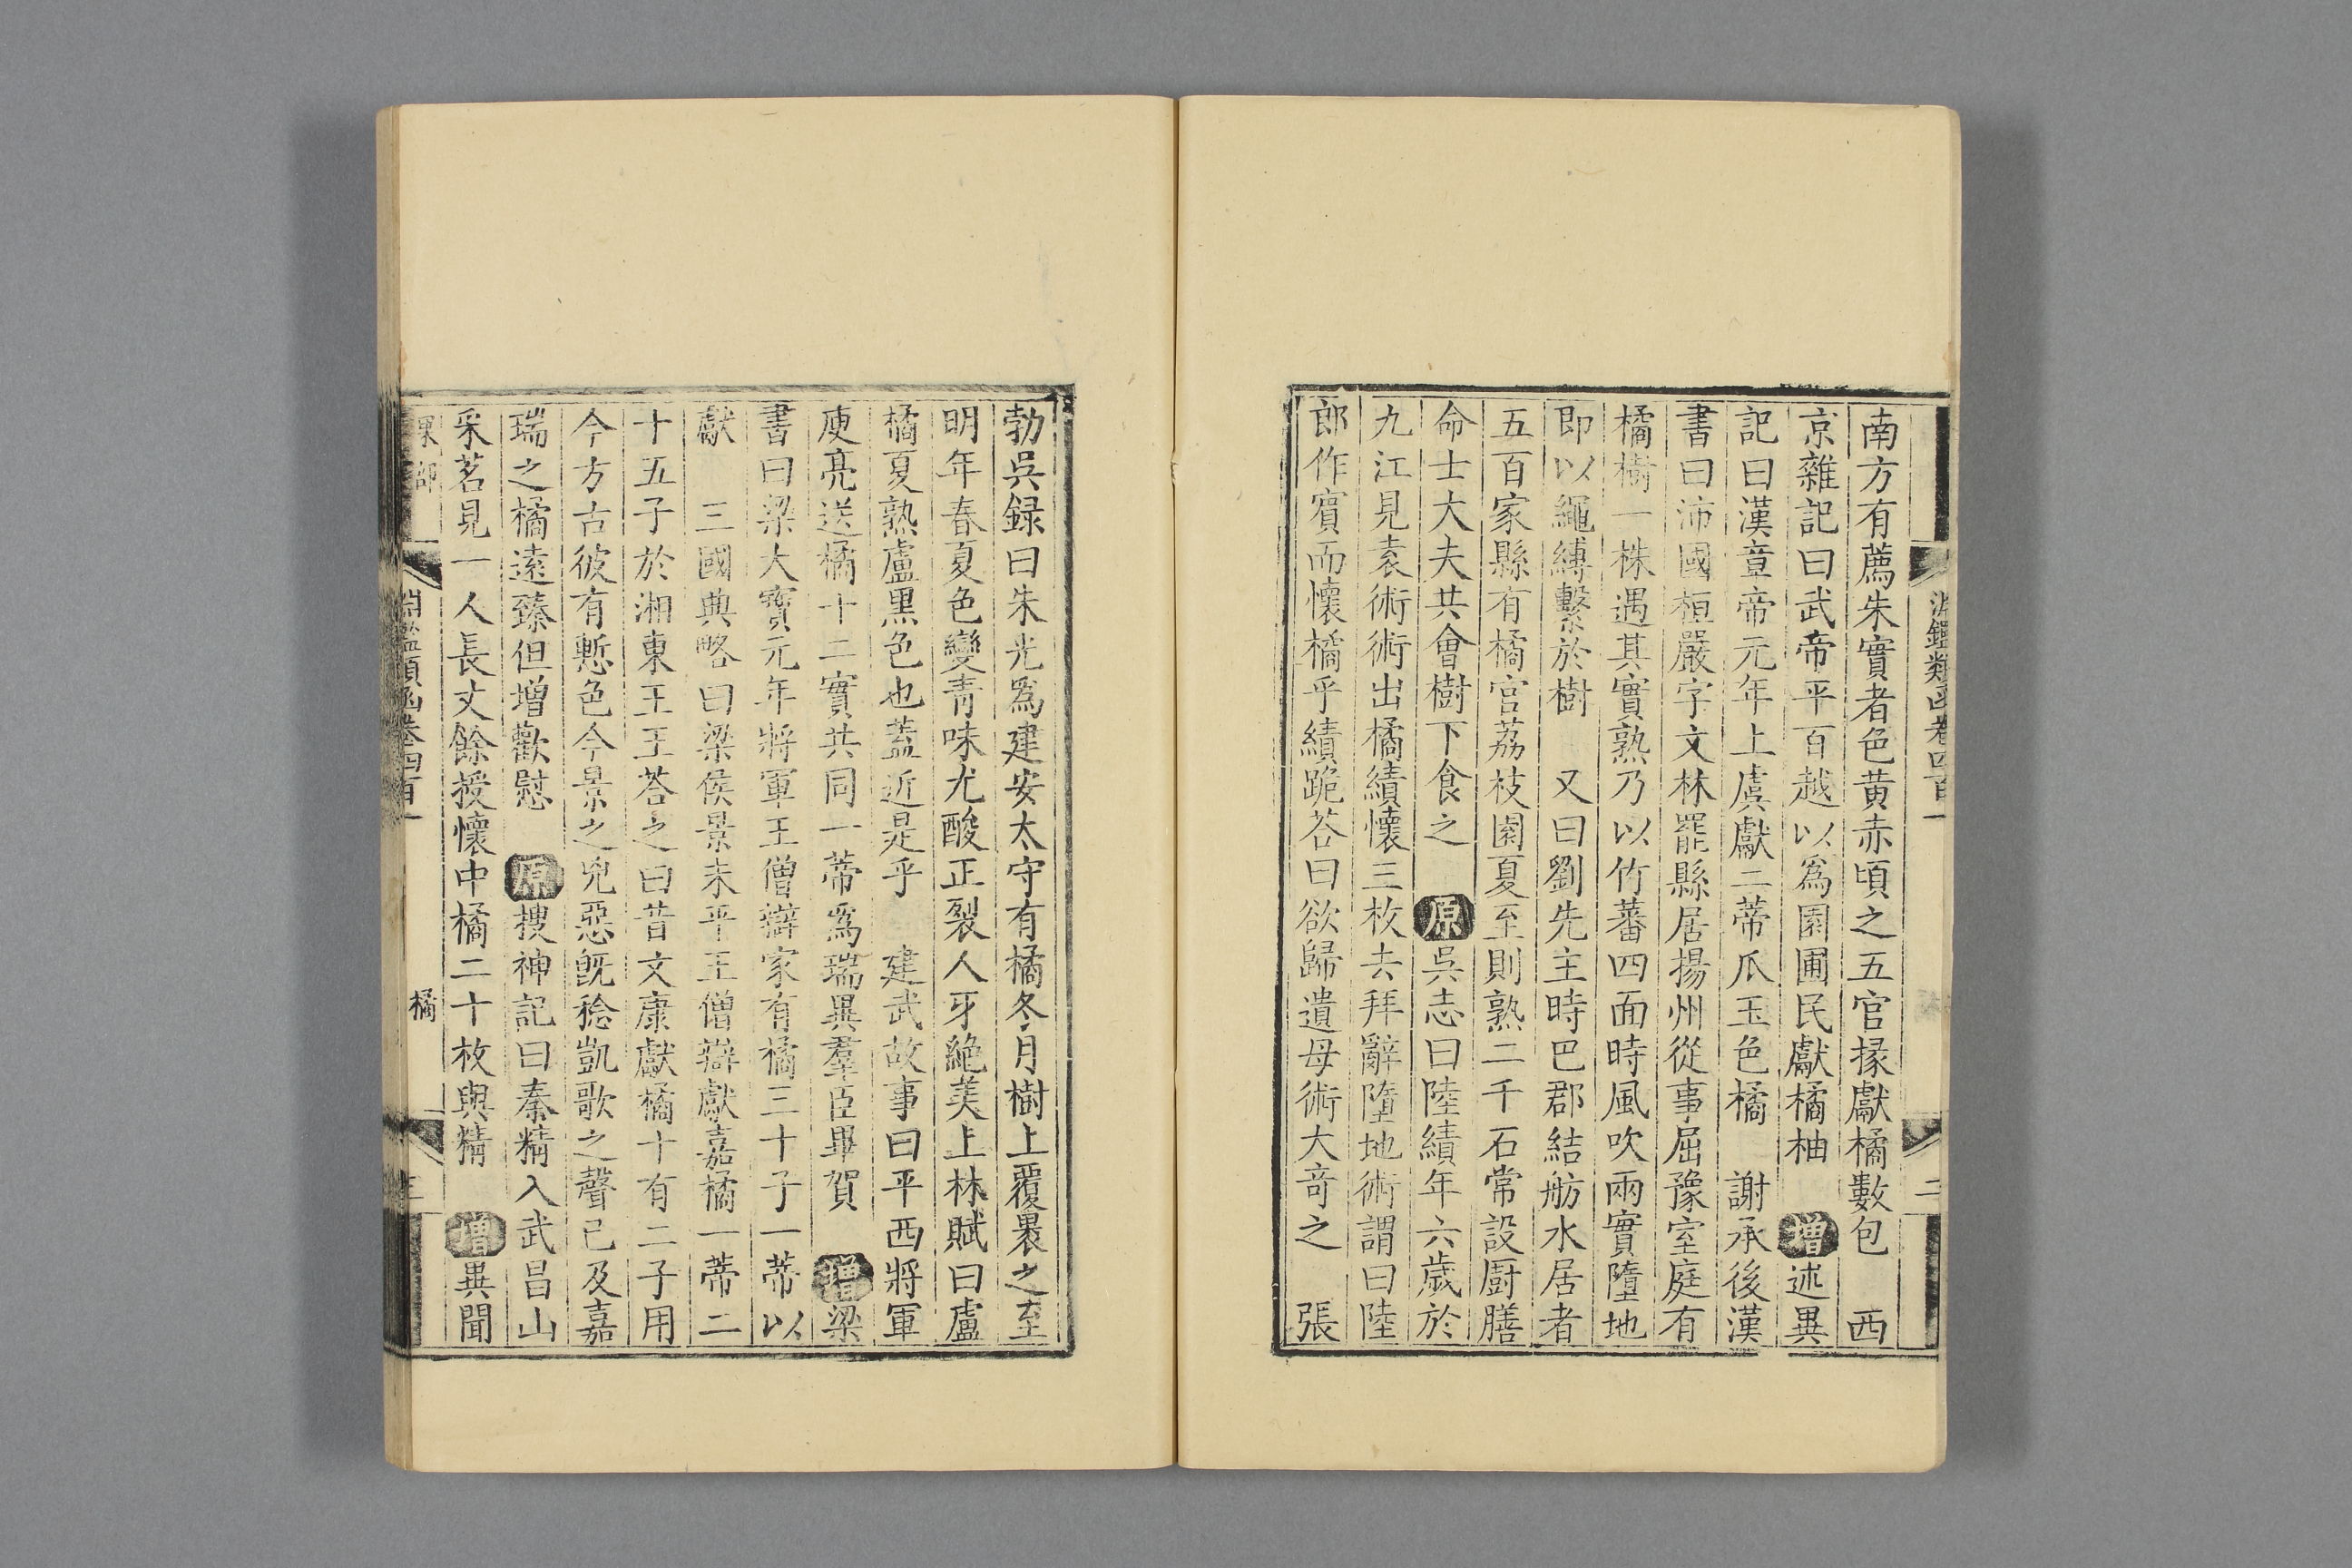 淵鑑類函卷四百一
二
南方有薦朱實者色黄赤頃之五官掾獻橘數包　西
京雜記曰武帝平百越以爲園圃民獻橘柚　增述異
記曰漢章帝元年上虞獻二蒂爪玉色橘　謝承後漢
書曰沛國桓嚴字文林罷縣居揚州從事屈豫室庭有
橘樹一株遇其實熟乃以竹蕃四面時風吹兩實墮地
即以繩縛繫於樹　又曰劉先主時巴郡結舫水居者
五百家縣有橘官荔枝園夏至則熟二千石常設厨膳
命士大夫共會樹下食之　原吳志曰陸績年六歲於
九江見袁術術出橘績懷三枚去拜辭墮地術謂曰陸
郎作賓而懷橘乎績跪荅曰欲歸遺母術大竒之　張
勃吳録曰朱光爲建安太守有橘冬月樹上覆褁之至
明年春夏色變青味尤酸正裂人牙絶美上林賦曰盧
橘夏熟盧黒色也蓋近是乎　建武故事曰平西將軍
庾亮送橘十二實共同一蒂爲瑞異羣臣畢賀　增梁
書曰梁大寶元年將軍王僧辯家有橘三十子一蒂以
獻　三國典略曰梁侯景未平王僧辯獻嘉橘一蒂二
十五子於湘東王王荅之曰昔文康獻橘十有二子用
今方古彼有慙色今景之兇惡旣稔凱歌之聲已及嘉
瑞之橘遠臻但增歡慰　原搜神記曰秦精入武昌山
采茗見一人長丈餘授懷中橘二十枚與精　增異聞
果部
淵鑑類函卷四百一
橘
三